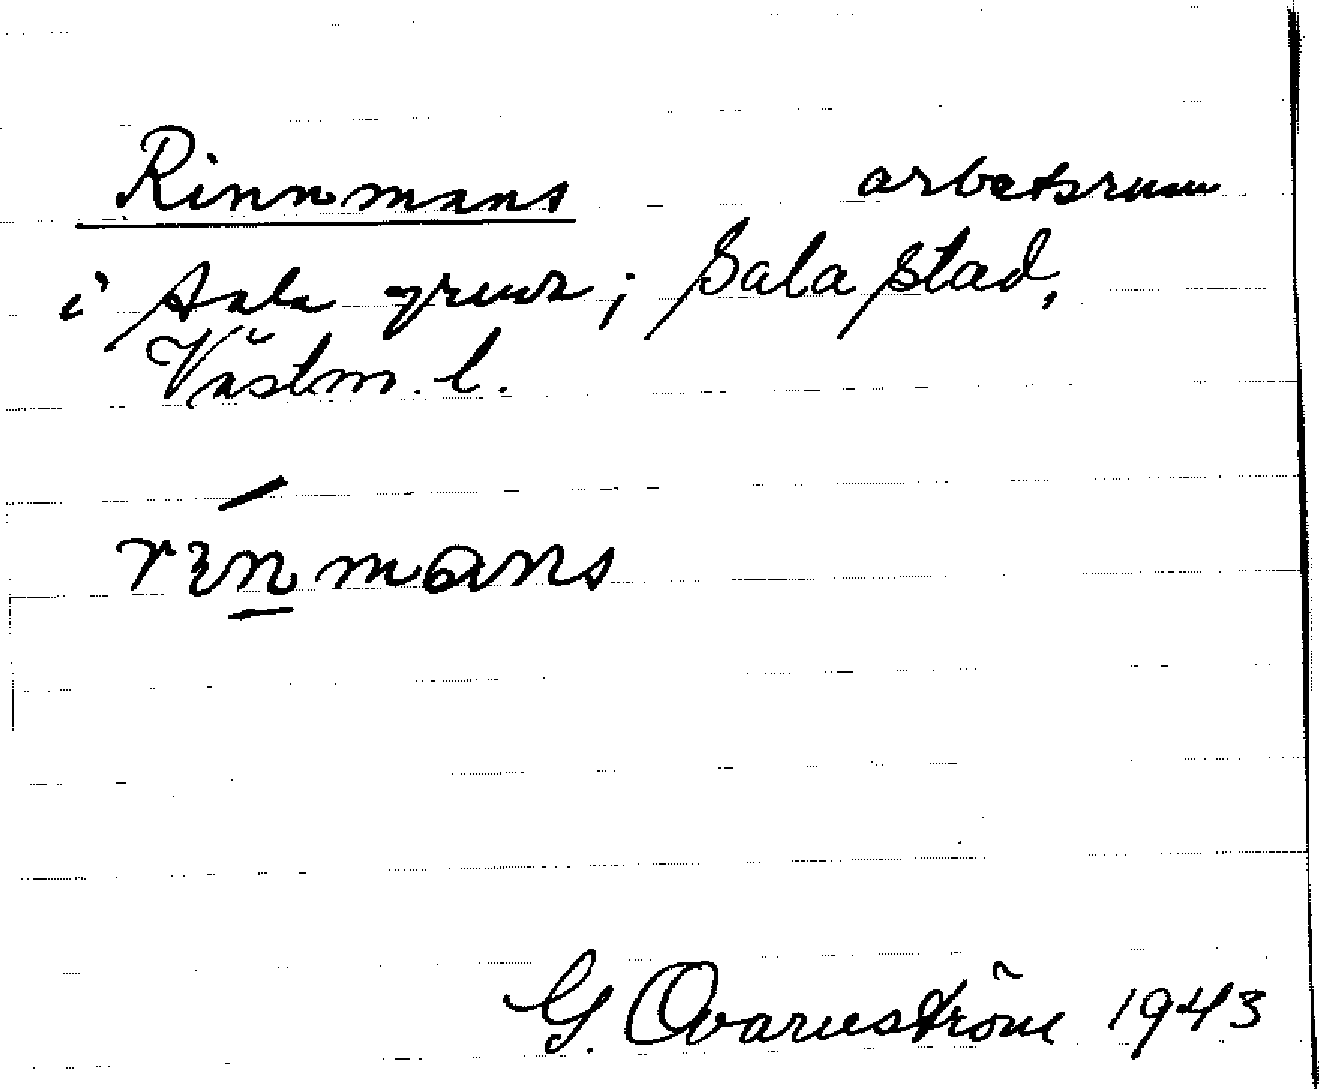 Rinnmans arbetsrum
i Sala gruva; Sala stad,
Västm. l.
rinmans
G. Qvarnström 1943